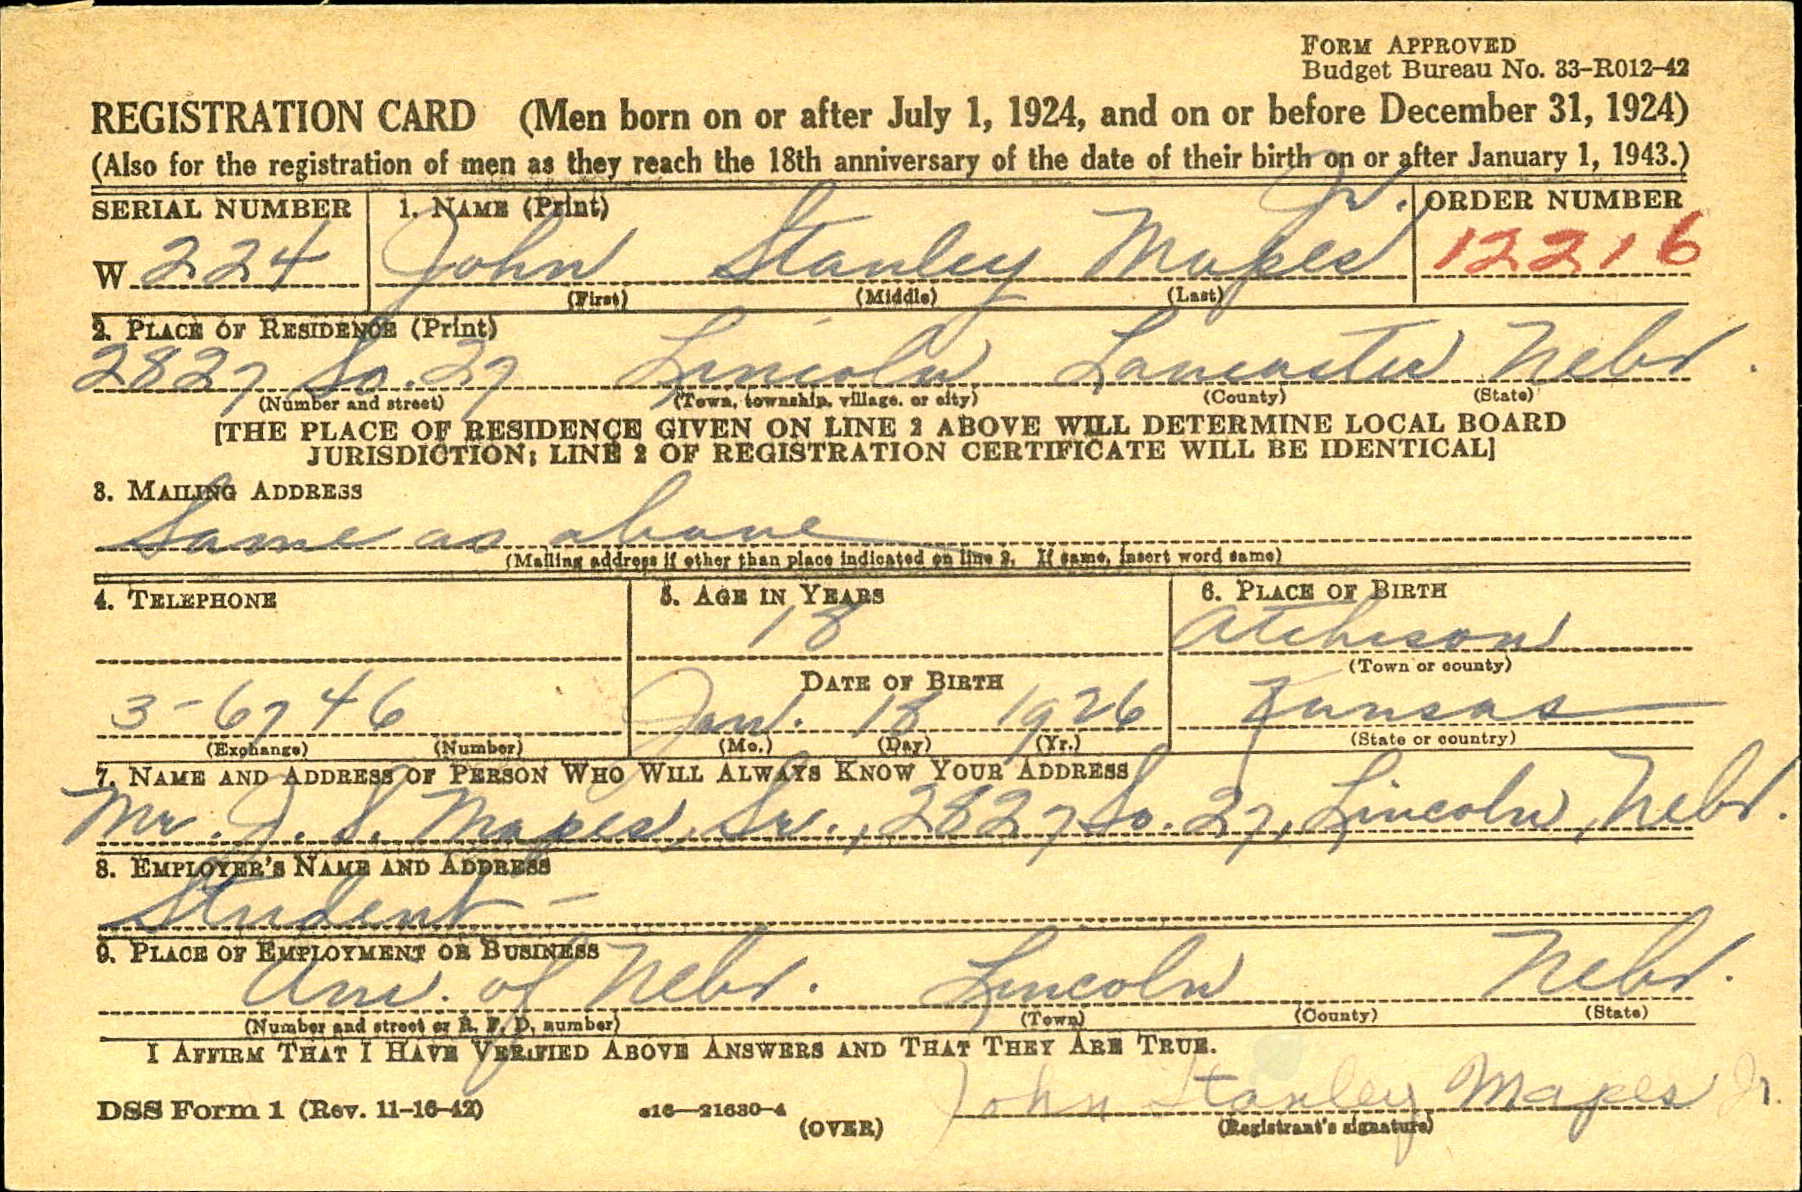 FORM APPROVED
Budget Bureau No. 33-R012-42
REGISTRATION CARD (Men born on or after July 1, 1924, and on or before December 31, 1924)
(Also for the registration of men as they reach the 18th anniversary of the date of their birth on or after January 1, 1943.)
SERIAL NUMBER 1. NAME (Print) ORDER NUMBER
Jr.
W 224 John Stanley Mapes 12216
(First) (Middle) (Last)
2. PLACE OF RESIDENCE (Print)
2827 So. 27 Lincoln Lancaster Nebr.
(Number and street) (Town, township, village, or city) (County) (State)
[THE PLACE OF RESIDENCE GIVEN ON LINE 2 ABOVE WILL DETERMINE LOCAL BOARD
JURISDICTION; LINE 2 OF REGISTRATION CERTIFICATE WILL BE IDENTICAL]
3. MAILING ADDRESS
Same as above
(Mailing address if other than place indicated on line 2. If same, insert word same)
4. TELEPHONE 5. AGE IN YEARS 6. PLACE OF BIRTH
18 Atchison
(Town or county)
DATE OF BIRTH
3-6746 Jan. 18 1926 Kansas
(Exchange) (Number) (Mo.) (Day) (Yr.) (State or country)
7. NAME AND ADDRESS OF PERSON WHO WILL ALWAYS KNOW YOUR ADDRESS
Mr. J. S. Mapes, Sr., 2827 So. 27, Lincoln, Nebr.
8. EMPLOYER'S NAME AND ADDRESS
Student -
9. PLACE OF EMPLOYMENT OR BUSINESS
Uni. of Nebr. Lincoln Nebr.
(Number and street or R. F. D. number) (Town) (County) (State)
I AFFIRM THAT I HAVE VERIFIED ABOVE ANSWERS AND THAT THEY ARE TRUE.
John Stanley Mapes Jr.
DSS Form 1 (Rev. 11-16-42) 16-21630-4 (OVER) (Registrant's signature)